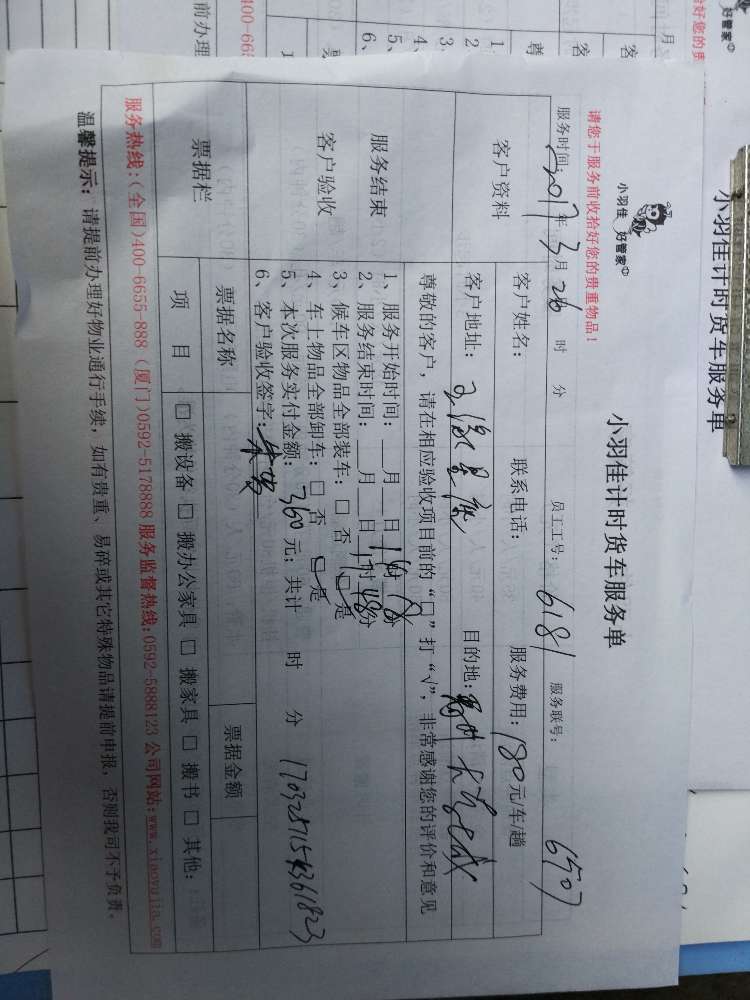 小羽佳 好管家
小羽佳计时货车服务单
请您于服务前收拾好您的贵重物品！
服务时间：2017年3月26 时 分 员工工号：6181 服务联号：6507
客户资料
客户姓名： 联系电话： 服务费用：180元/车/趟
客户地址： 目的地：
尊敬的客户，请在相应验收项目前的“口”打“√”，非常感谢您的评价和意见
服务结束
客户验收
1、服务开始时间： 月 日 时 分
2、服务结束时间： 月 日17时48分
3、候车区物品全部装车：□ 否 □ 是
4、车上物品全部卸车：□ 否 □ 是
5、本次服务实付金额：360元；共计 时 分
6、客户验收签字：
票据栏
票据名称 票据金额
项 目 □ 搬设备 □ 搬办公家具 □ 搬家具 □ 搬书 □ 其他：
服务热线:(全国)400-6655-888 (厦门)0592-5178888 服务监督热线:0592-5888123 公司网站:www.xiaoyujia.com
温馨提示：请提前办理好物业通行手续，如有贵重、易碎或其它特殊物品请提前申报，否则我司不予负责。
小羽佳计时货车服务单
好管家